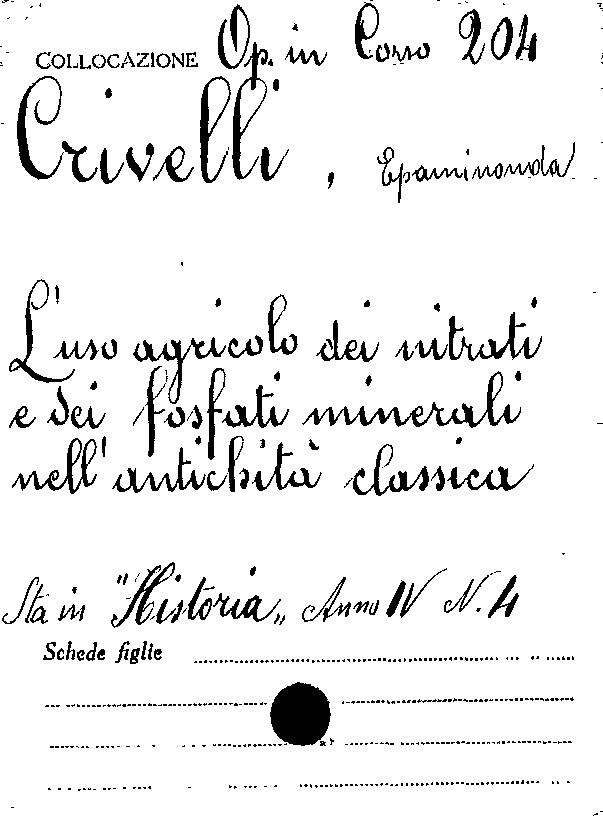 COLLOCAZIONE Op. in Corso 204
Crivelli, Epaminonda
L'uso agricolo dei nitrati
e dei fosfati minerali
nell'antichità classica
Sta in "Historia„ Anno IV N. 4
Schede figlie